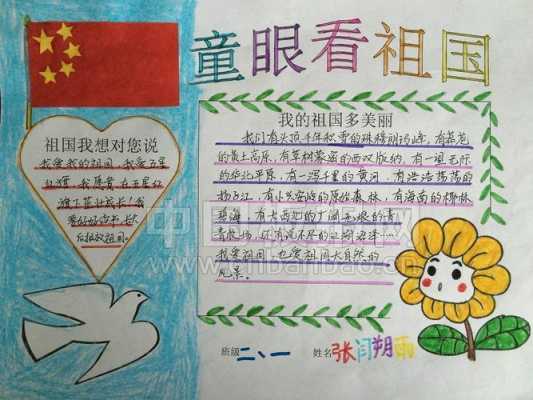 童眼看祖国
祖国我想对您说
我爱我的祖国,我爱五星
红旗,我愿意在五星红
旗下茁壮成长!我
要好好读书,长大
后报效祖国。
我的祖国多美丽
我们有头顶千年积雪的珠穆朗玛峰,有苍茫
的黄土高原,有草树蒙密的西双版纳,有一望无际
的华北平原,有一泻千里的黄河,有浩浩荡荡的
扬子江,有小兴安岭的原始森林,有海南的椰林
碧海,有大西北的广阔无垠的青
青牧场,还有说不尽的江湖沼泽…
我爱祖国,也爱祖国大自然的
风景。
班级 二、一 姓名 张闫朔雨
www.chibanbao.cn